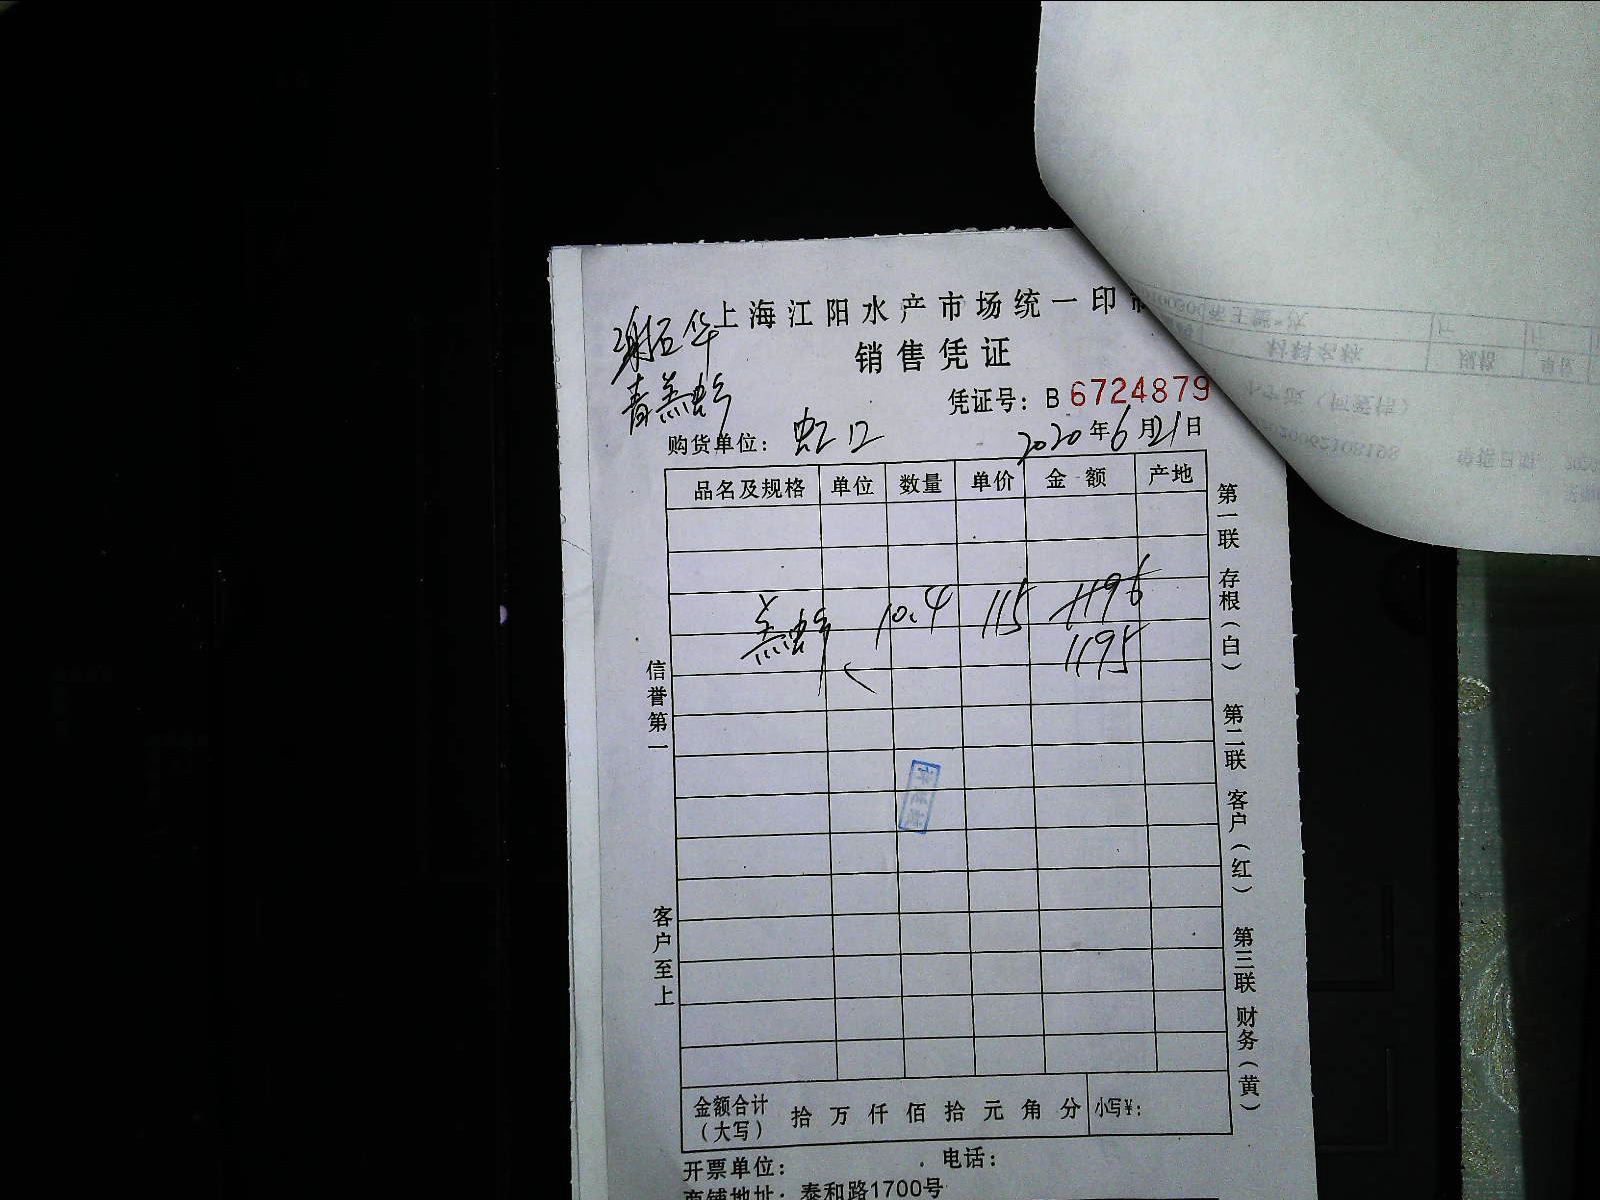 上海江阳水产市场统一印
销售凭证
凭证号：B 6724879
购货单位：虹口
2020年6月21日
品名及规格 单位 数量 单价 金额 产地
羔蟹 10.4 115 1196
1195
信誉第一
客户至上
第一联 存根（白） 第二联 客户（红） 第三联 财务（黄）
金额合计（大写） 拾万仟佰拾元角分 小写¥：
开票单位： 电话：
商铺地址：泰和路1700号